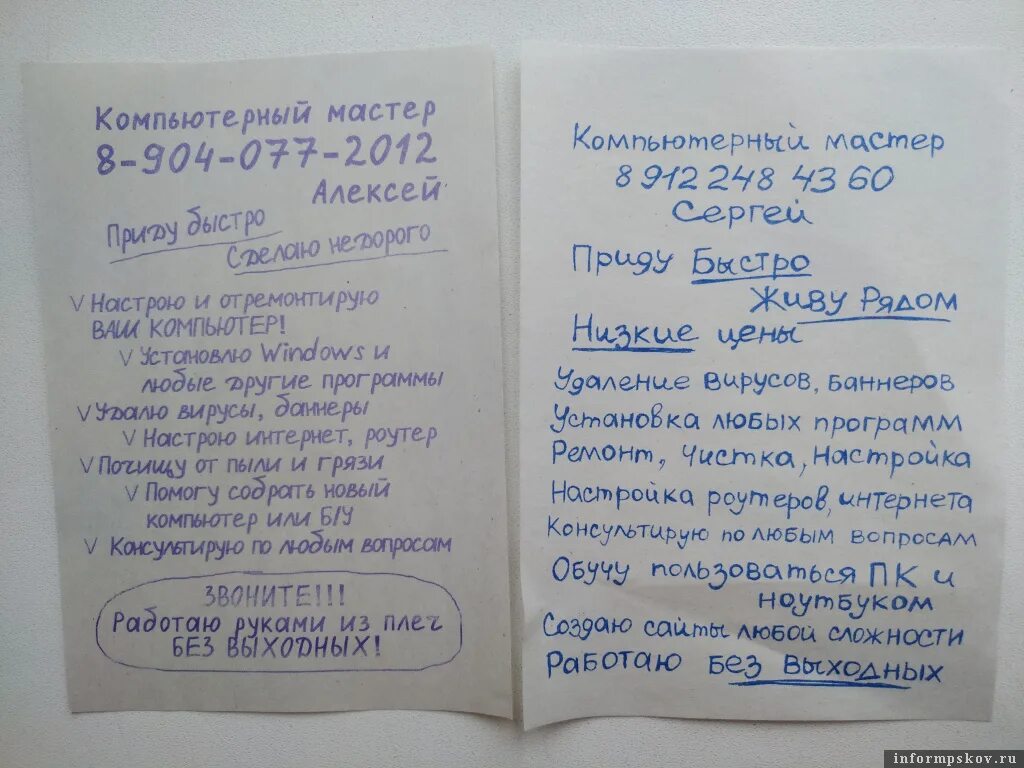 Компьютерный мастер
8-904-077-2012
Алексей
Приду быстро
Сделаю недорого
V Настрою и отремонтирую
ВАШ КОМПЬЮТЕР!
V Установлю Windows и
любые другие программы
V Удалю вирусы, баннеры
V Настрою интернет, роутер
V Почищу от пыли и грязи
V Помогу собрать новый
компьютер или Б/У
V Консультирую по любым вопросам
ЗВОНИТЕ!!!
Работаю руками из плеч
БЕЗ ВЫХОДНЫХ!
Компьютерный мастер
8 912 248 43 60
Сергей
Приду Быстро
Живу Рядом
Низкие цены
Удаление вирусов, баннеров
Установка любых программ
Ремонт, Чистка, Настройка
Настройка роутеров, интернета
Консультирую по любым вопросам
Обучу пользоваться ПК и
ноутбуком
Создаю сайты любой сложности
Работаю Без выходных
informpskov.ru